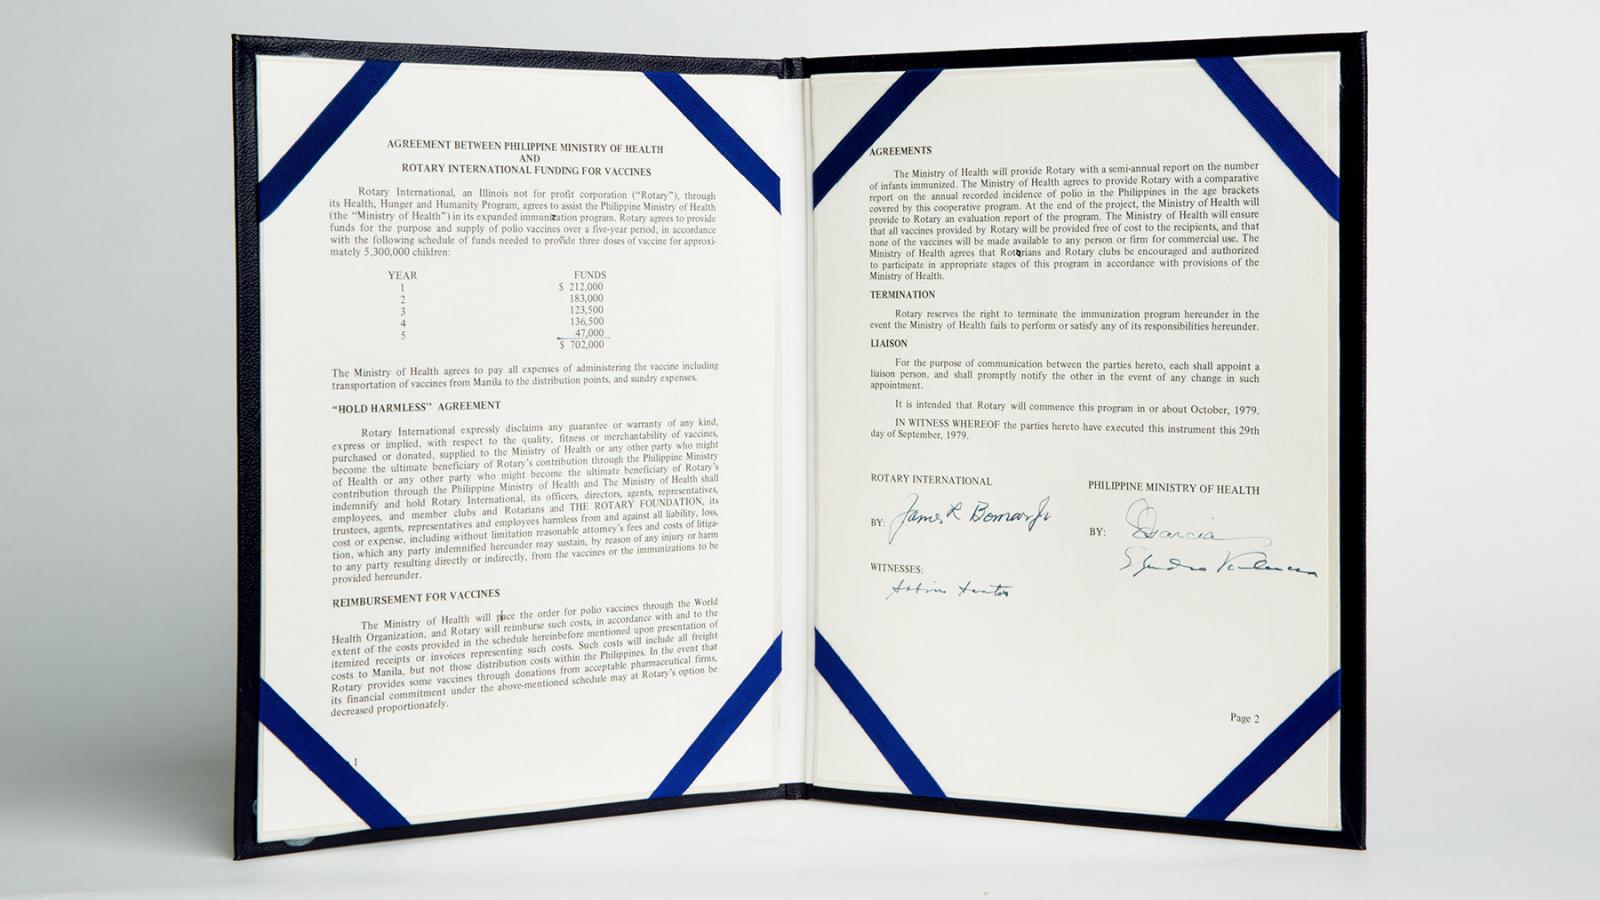 AGREEMENT BETWEEN PHILIPPINE MINISTRY OF HEALTH
AND
ROTARY INTERNATIONAL FUNDING FOR VACCINES
Rotary International, an Illinois not for profit corporation (“Rotary”), through
its Health, Hunger and Humanity Program, agrees to assist the Philippine Ministry of Health
(the “Ministry of Health”) in its expanded immunization program. Rotary agrees to provide
funds for the purpose and supply of polio vaccines over a five-year period, in accordance
with the following schedule of funds needed to provide three doses of vaccine for approxi-
mately 5,300,000 children:
YEAR FUNDS
1 $ 212,000
2 183,000
3 123,500
4 136,500
5 47,000
$ 702,000
The Ministry of Health agrees to pay all expenses of administering the vaccine including
transportation of vaccines from Manila to the distribution points, and sundry expenses.
“HOLD HARMLESS” AGREEMENT
Rotary International expressly disclaims any guarantee or warranty of any kind,
express or implied, with respect to the quality, fitness or merchantability of vaccines,
purchased or donated, supplied to the Ministry of Health or any other party who might
become the ultimate beneficiary of Rotary’s contribution through the Philippine Ministry
of Health or any other party who might become the ultimate beneficiary of Rotary’s
contribution through the Philippine Ministry of Health and The Ministry of Health shall
indemnify and hold Rotary International, its officers, directors, agents, representatives,
employees, and member clubs and Rotarians and THE ROTARY FOUNDATION, its
trustees, agents, representatives and employees harmless from and against all liability, loss,
cost or expense, including without limitation reasonable attorney’s fees and costs of litiga-
tion, which any party indemnified hereunder may sustain, by reason of any injury or harm
to any party resulting directly or indirectly, from the vaccines or the immunizations to be
provided hereunder.
REIMBURSEMENT FOR VACCINES
The Ministry of Health will place the order for polio vaccines through the World
Health Organization, and Rotary will reimburse such costs, in accordance with and to the
extent of the costs provided in the schedule hereinbefore mentioned upon presentation of
itemized receipts or invoices representing such costs. Such costs will include all freight
costs to Manila, but not those distribution costs within the Philippines. In the event that
Rotary provides some vaccines through donations from acceptable pharmaceutical firms,
its financial commitment under the above-mentioned schedule may at Rotary’s option be
decreased proportionately.
1
AGREEMENTS
The Ministry of Health will provide Rotary with a semi-annual report on the number
of infants immunized. The Ministry of Health agrees to provide Rotary with a comparative
report on the annual recorded incidence of polio in the Philippines in the age brackets
covered by this cooperative program. At the end of the project, the Ministry of Health will
provide to Rotary an evaluation report of the program. The Ministry of Health will ensure
that all vaccines provided by Rotary will be provided free of cost to the recipients, and that
none of the vaccines will be made available to any person or firm for commercial use. The
Ministry of Health agrees that Rotarians and Rotary clubs be encouraged and authorized
to participate in appropriate stages of this program in accordance with provisions of the
Ministry of Health.
TERMINATION
Rotary reserves the right to terminate the immunization program hereunder in the
event the Ministry of Health fails to perform or satisfy any of its responsibilities hereunder.
LIAISON
For the purpose of communication between the parties hereto, each shall appoint a
liaison person, and shall promptly notify the other in the event of any change in such
appointment.
It is intended that Rotary will commence this program in or about October, 1979.
IN WITNESS WHEREOF the parties hereto have executed this instrument this 29th
day of September, 1979.
ROTARY INTERNATIONAL
BY: James L Bomar Jr
WITNESSES:
PHILIPPINE MINISTRY OF HEALTH
BY: Garcia
Page 2